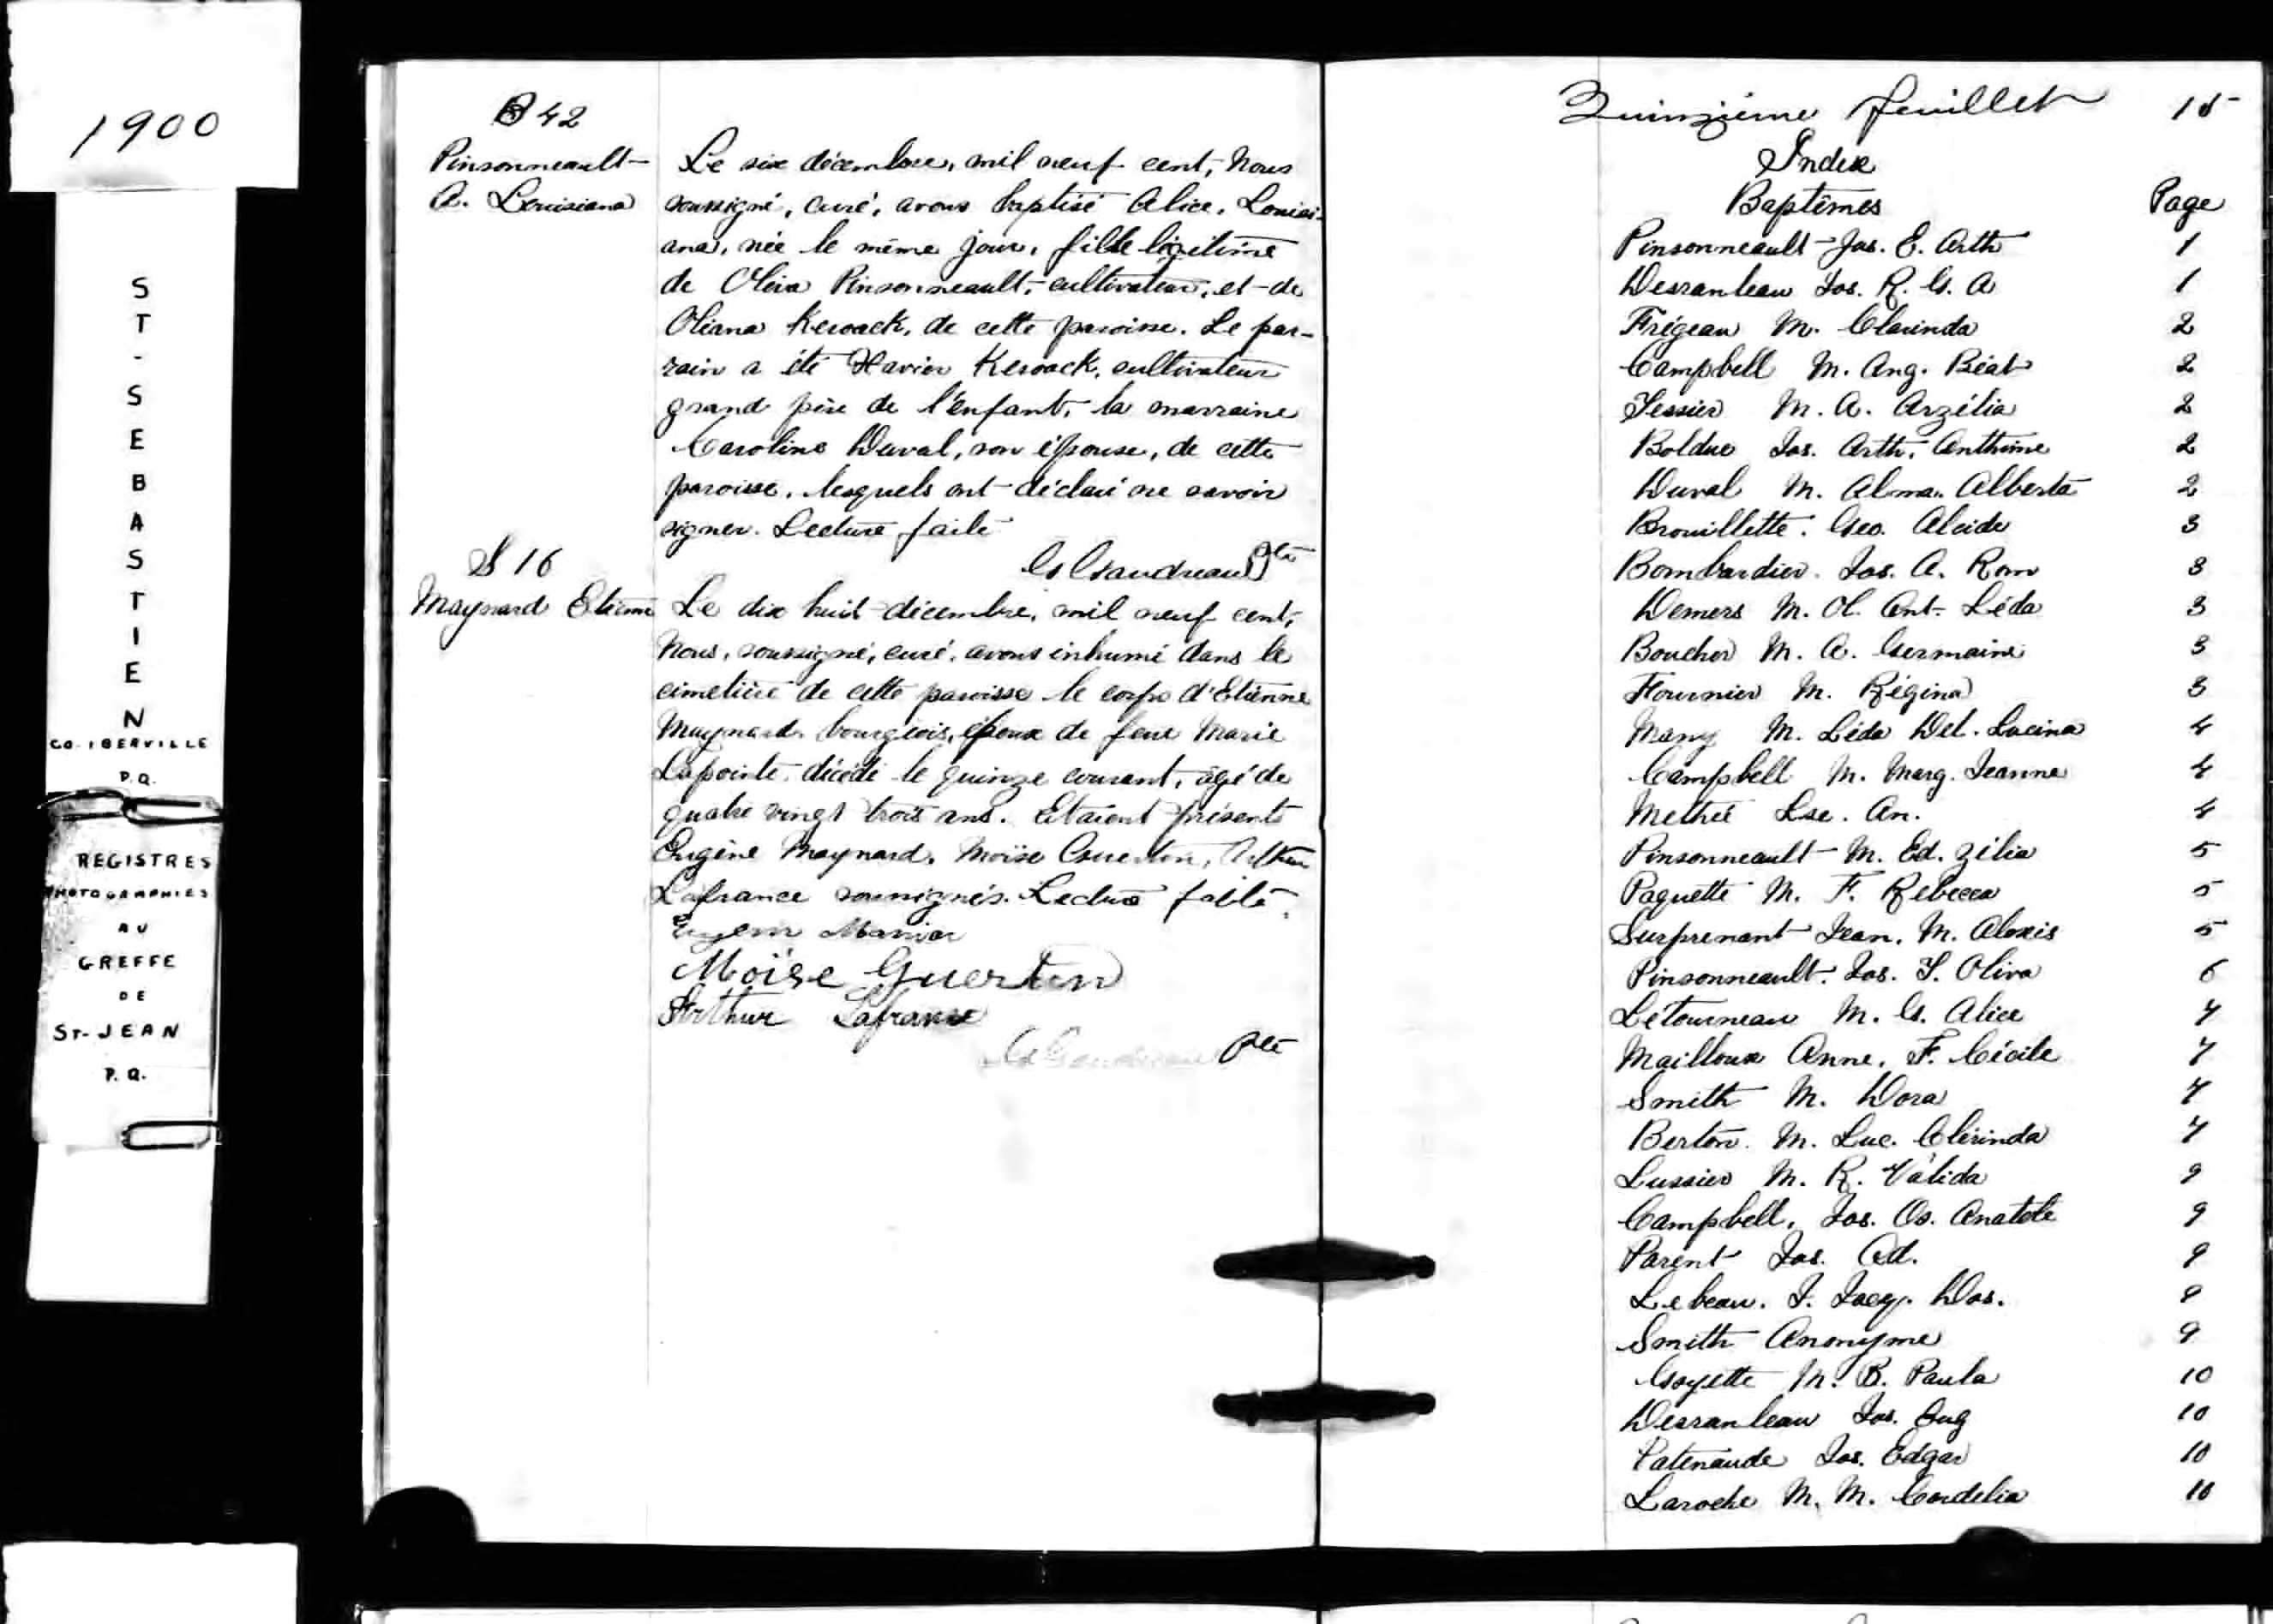 1900
ST-SEBASTIEN
CO. IBERVILLE
P.Q.
REGISTRES
PHOTOGRAPHIES
AU
GREFFE
DE
ST-JEAN
P.Q.
B 42
Pinsonneault
A. Louisiana
Le six décembre, mil neuf cent, Nous
soussigné, curé, avons baptisé Alice, Louisi-
ana, née le même jour, fille légitime
de Oliva Pinsonneault, cultivateur, et de
Oliana Keroack, de cette paroisse. Le par-
rain a été Xavier Keroack, cultivateur
grand père de l'enfant, la marraine
Caroline Duval, son épouse, de cette
paroisse, lesquels ont déclaré ne savoir
signer. Lecture faite
Gaudreau Ptre
S 16
Maynard Etienne
Le dix huit décembre, mil neuf cent,
Nous, soussigné, curé, avons inhumé dans le
cimetière de cette paroisse le corps d'Etienne
Maynard, bourgeois, époux de feue Marie
Lapointe, décédé le quinze courant, âgé de
quatre vingt trois ans. Etaient présents
Eugène Maynard, Moïse Guertin, Arthur
Lafrance soussignés. Lecture faite.
Moïse Guertin
Arthur Lafrance
Gaudreau Ptre
Quinzième feuillet 15
Index
Baptêmes Page
Pinsonneault Jos. E. Arth 1
Desranleau Jos. R. G. A 1
Frégeau M. Clarinda 2
Campbell M. Ang. Béat 2
Tessier M. A. Arzélia 2
Bolduc Jos. Arth. Anthime 2
Duval M. Alma. Alberta 2
Brouillette. Geo. Alcide 3
Bombardier. Jos. A. Rom 3
Demers M. Ol. Ant. Léda 3
Boucher M. A. Germaine 3
Fournier M. Régina 3
Many M. Léda Del. Lucina 4
Campbell M. Marg. Jeanne 4
Methé Lse. An. 4
Pinsonneault M. Ed. Zélia 5
Paquette M. F. Rébecca 5
Surprenant Jean. M. Alexis 5
Pinsonneault. Jos. T. Oliva 6
Letourneau M. G. Alice 7
Mailloux Anne. F. Cécile 7
Smith M. Dora 7
Berton. M. Luc. Clérinda 7
Lussier M. R. Valida 9
Campbell. Jos. Os. Anatole 9
Parent Jos. Ad. 9
Lebeau. J. Jacq. Dos. 9
Smith Anonyme 9
Goyette M. B. Paula 10
Desranleau Jos. Eug 10
Patenaude Jos. Edgar 10
Laroche M. M. Cordelia 10